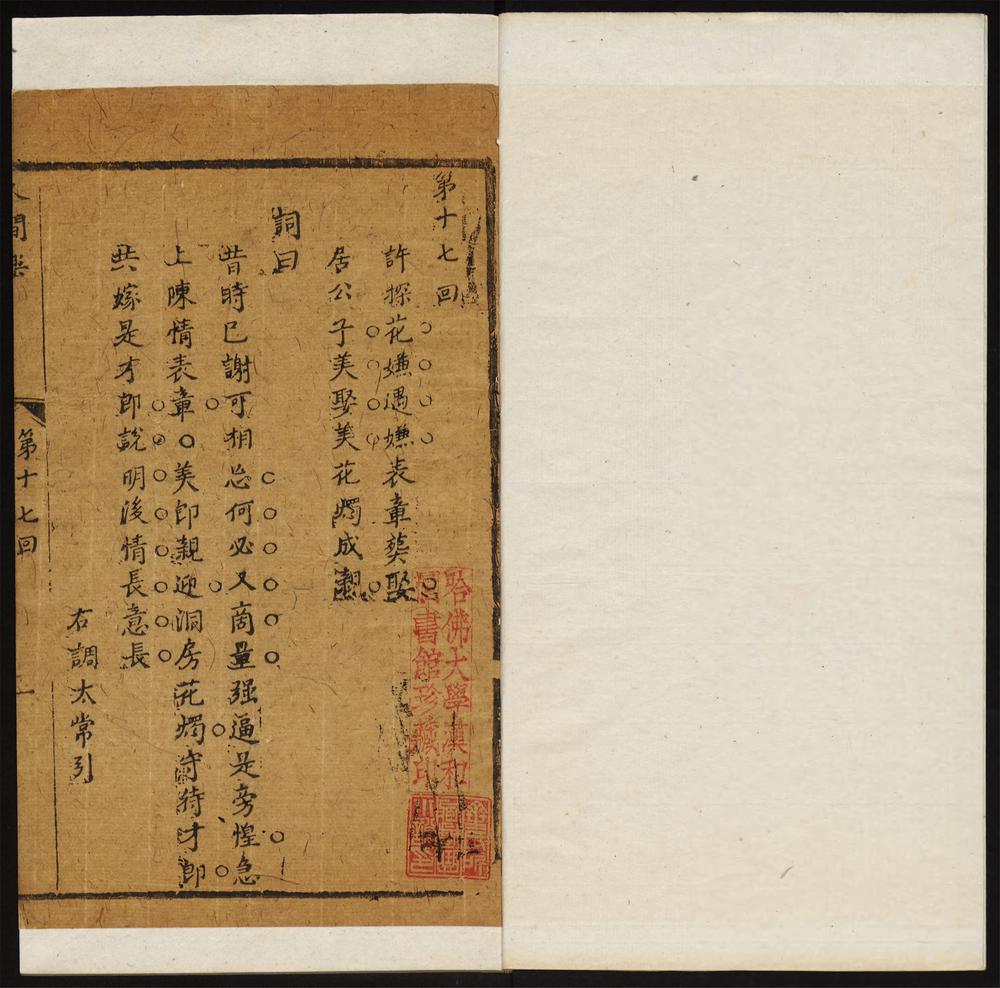 第十七回
許探花嫌遇嫌表章葉娶
居公子美娶美花燭成親
詞曰
昔時已謝可相忘何必又商量强逼是旁惶急
上陳情表章○美郎親迎洞房花燭守待才郎
共嫁是才郎說明後情長意長
右調太常引
人間樂
第十七回
哈佛大學漢和
圖書館珍藏印